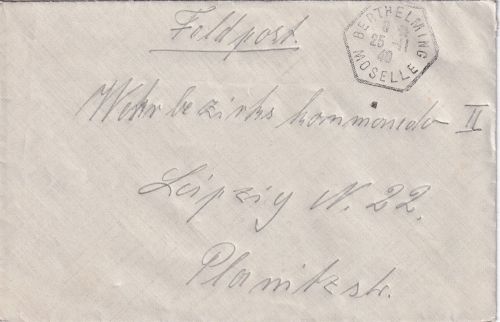 Feldpost
BERTHELMING
25 -11
40
MOSELLE
Wehrbezirkskommando II
Leipzig N. 22.
Planitzstr.